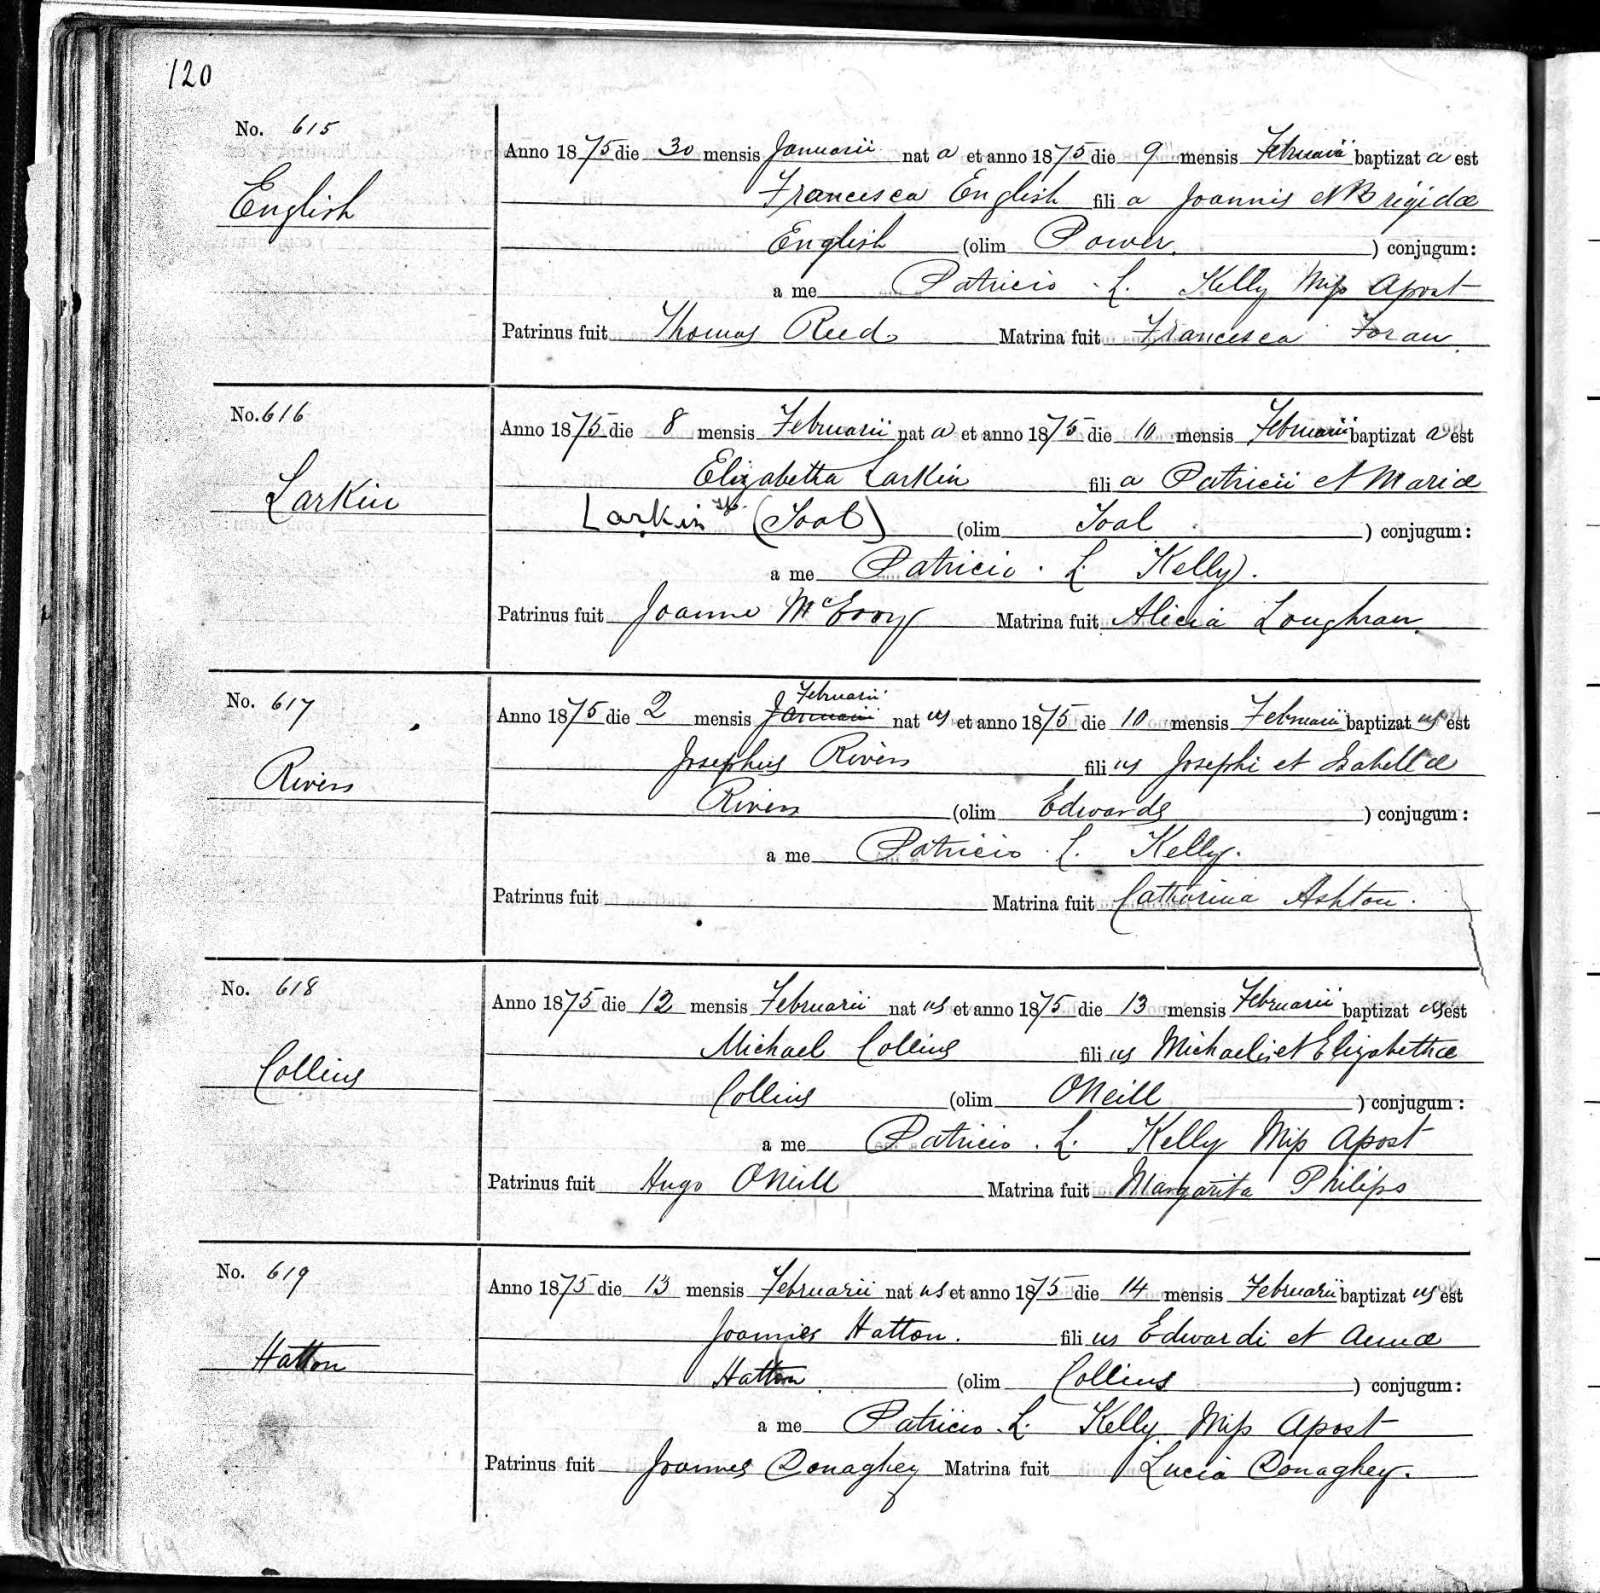 120
No. 615
English
Anno 1875 die 30 mensis Januarii nat a et anno 1875 die 9 mensis Februarii baptizat a est
Francesca English fili a Joannis et Brigidæ
English (olim Power. ) conjugum:
a me Patricio . L. Kelly Miss Apost
Patrinus fuit Thomas Reed Matrina fuit Francesca Foran
No. 616
Larkin
Anno 1875 die 8 mensis Februarii nat a et anno 1875 die 10 mensis Februarii baptizat a est
Elizabetha Larkin fili a Patricii et Mariæ
Larkin (Toal) (olim Toal ) conjugum:
a me Patricio . L. Kelly.
Patrinus fuit Joanne McEvoy Matrina fuit Alicia Loughran.
No. 617
Rivers
Februarii
Anno 1875 die 2 mensis Januarii nat us et anno 1875 die 10 mensis Februarii baptizat us est
Josephus Rivers fili us Josephi et Isabellæ
Rivers (olim Edwards ) conjugum:
a me Patricio . L. Kelly.
Patrinus fuit Matrina fuit Catharina Ashton.
No. 618
Collins
Anno 1875 die 12 mensis Februarii nat us et anno 1875 die 13 mensis Februarii baptizat us est
Michael Collins fili us Michaelis et Elizabethæ
Collins (olim ONeill ) conjugum:
a me Patricio . L. Kelly Miss Apost
Patrinus fuit Hugo ONeill Matrina fuit Margarita Philips
No. 619
Hatton
Anno 1875 die 13 mensis Februarii nat us et anno 1875 die 14 mensis Februarii baptizat us est
Joannes Hatton. fili us Edwardi et Annæ
Hatton (olim Collins ) conjugum:
a me Patricio . L. Kelly Miss Apost
Patrinus fuit Joannes Donaghey Matrina fuit Lucia Donaghey.